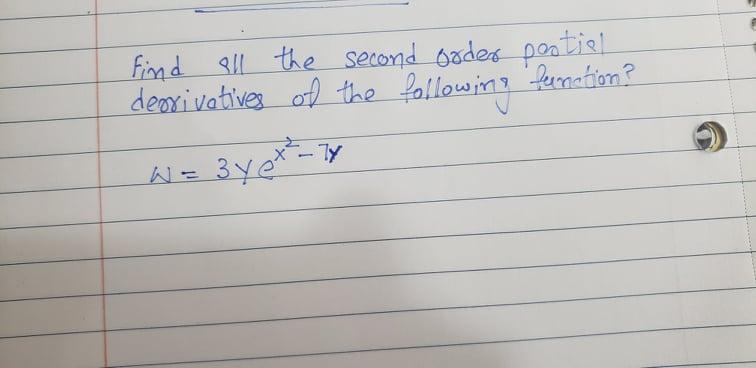 Find all the second order partial
derivatives of the following function?
W = 3ye^{x^2-7y}